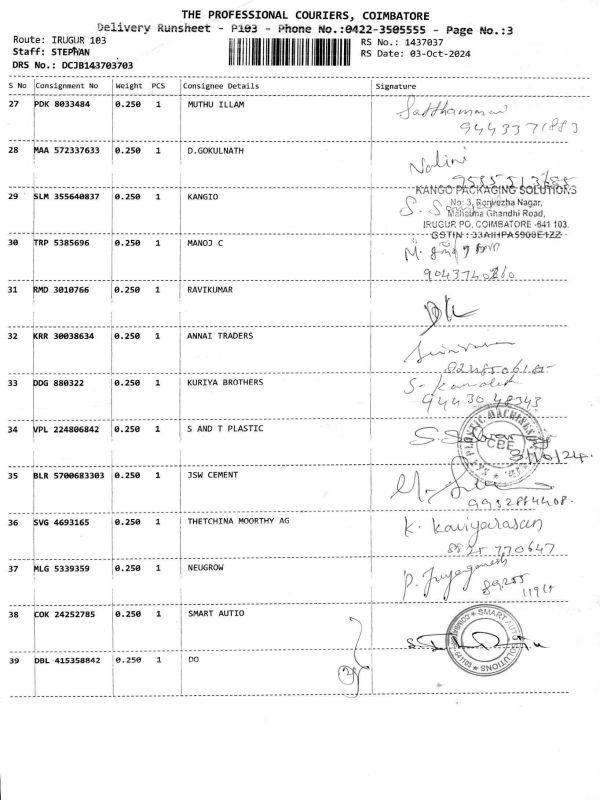 THE PROFESSIONAL COURIERS, COIMBATORE
Delivery Runsheet - P103 - Phone No.:0422-3505555 - Page No.:3
Route: IRUGUR 103 RS No.: 1437037
Staff: STEPHAN RS Date: 03-Oct-2024
DRS No.: DCJB143703703
S No Consignment No Weight PCS Consignee Details Signature
27 PDK 8033484 0.250 1 MUTHU ILLAM
9443371883
28 MAA 572337633 0.250 1 D.GOKULNATH
Nalini
29 SLM 355640837 0.250 1 KANGIO
KANGO PACKAGING SOLUTIONS
Mahatma Ghandhi Road,
IRUGUR PO, COIMBATORE -641 103.
30 TRP 5385696 0.250 1 MANOJ C
31 RMD 3010766 0.250 1 RAVIKUMAR
32 KRR 30038634 0.250 1 ANNAI TRADERS
33 DDG 880322 0.250 1 KURIYA BROTHERS
94430 48343
34 VPL 224806842 0.250 1 S AND T PLASTIC
CBE
3/10/24.
35 BLR 5700683303 0.250 1 JSW CEMENT
36 SVG 4693165 0.250 1 THETCHINA MOORTHY AG
K. Kaviyarasan
8825 770647
37 MLG 5339359 0.250 1 NEUGROW
38 COK 24252785 0.250 1 SMART AUTIO
SMART AUTO SOLUTIONS
39 DBL 415358842 0.250 1 DO